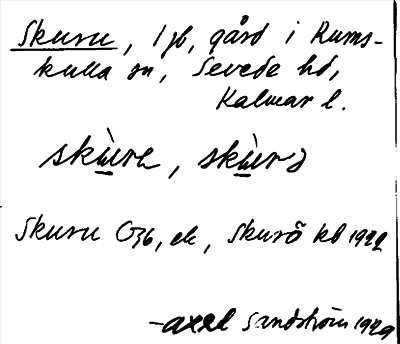 Skuru, 1 gb, gård i Rums-
kulla sn, Sevede hd,
Kalmar l.
skùrɛ, skùrə
Skuru G36, ek, Skurö kb 1922
-Axel Sandström 1929